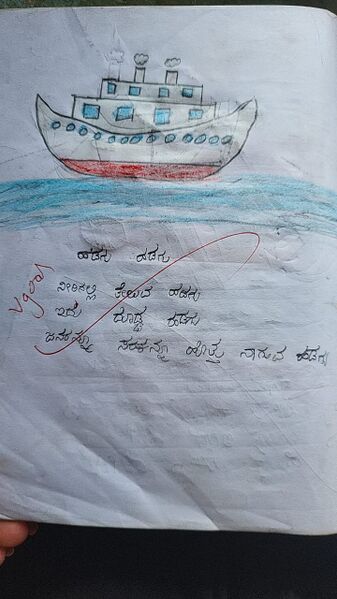 ಹಡಗು ಹಡಗು
ನೀರಿನಲ್ಲಿ ತೇಲುವ ಹಡಗು
ಇದು ದೊಡ್ಡ ಹಡಗು
ಜನರನ್ನೂ ಸರಕನ್ನೂ ಹೊತ್ತು ಸಾಗುವ ಹಡಗು